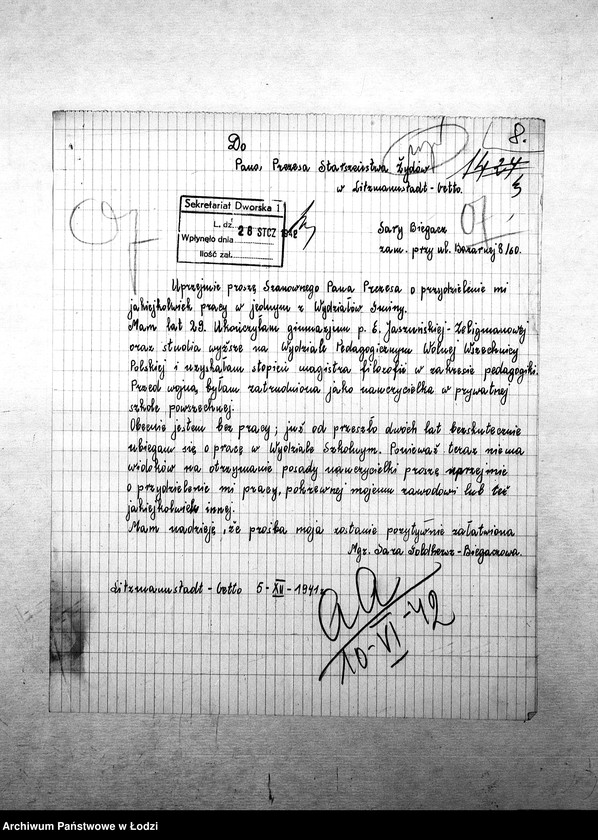 8.
Do
Pana, Prezesa Starszeństwa Żydów
1424
3
w Litzmannstadt-Getto.
Sekretariat Dworska 1
L. dz.
Wpłynęło dnia 28 STCZ 1942
Ilość zał.
Sary Biegacz
zam. przy ul. Bazarnej 8/60.
Uprzejmie proszę Szanownego Pana Prezesa o przydzielenie mi
jakiejkolwiek pracy w jednym z Wydziałów Gminy.
Mam lat 29. Ukończyłam gimnazjum p. E. Jaszuńskiej-Zeligmanowej
oraz studia wyższe na Wydziale Pedagogicznym Wolnej Wszechnicy
Polskiej i uzyskałam stopień magistra filozofii w zakresie pedagogiki.
Przed wojną byłam zatrudniona jako nauczycielka w prywatnej
szkole powszechnej.
Obecnie jestem bez pracy; już od przeszło dwóch lat bezskutecznie
ubiegam się o pracę w Wydziale Szkolnym. Ponieważ teraz niema
widoków na otrzymanie posady nauczycielki proszę uprzejmie
o przydzielenie mi pracy, pokrewnej mojemu zawodowi lub też
jakiejkolwiek innej.
Mam nadzieję, że prośba moja zostanie pozytywnie załatwiona
Mgr. Sara Goldherz-Biegaczowa.
Litzmannstadt-Getto 5-XII-1941r.
aa
10-VI-42
Archiwum Państwowe w Łodzi